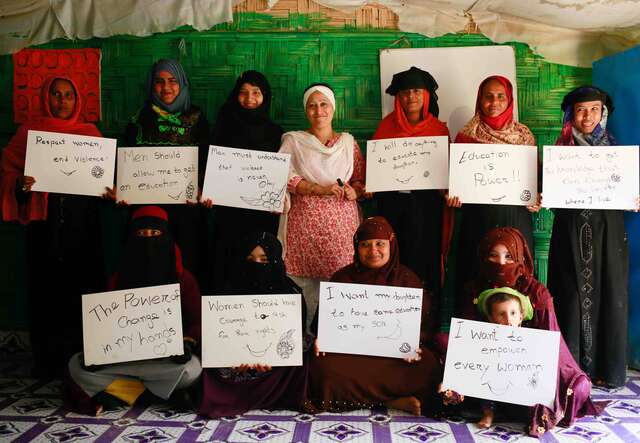 Respect women,
end violence!
Men should
allow me to get
an education
Men must understand
that violence
is never
Okay
I will do anything
to educate my
daughters
Education is
Power!!
I want to get
the knowledge
the
Society
where I live
The Power of
Change is
in my hands
Women should have
Courage to ask
for their rights
I want my daughters
to have same education
as my son
I want to
empower
every woman